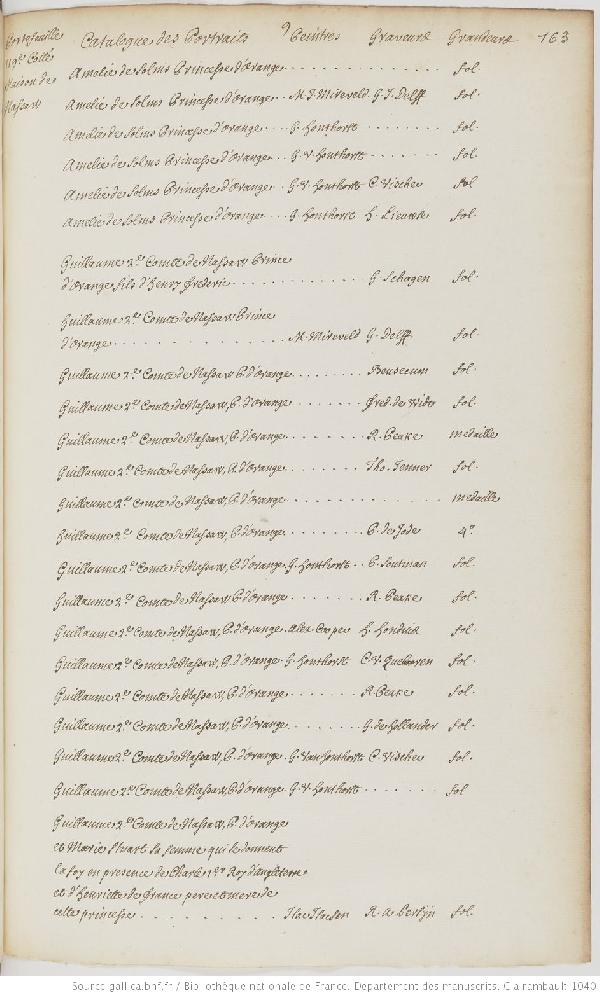 Portefeuille
Maison de
Nassaw
Catalogue des Portraits Peintres Graveurs Grandeurs 163
Amelie de Solms Princesse d'Orange . . . . . . . . . . . fol.
Amelie de Solms Princesse d'Orange . . M. J. Mireveld G. J. Delff fol.
Amelie de Solms Princesse d'Orange . . . G. Honthorst . . . . . . . fol.
Amelie de Solms Princesse d'Orange . . . G. V. Honthorst . . . . . . . fol.
Amelie de Solms Princesse d'Orange . . G. V. Honthorst C. Vischer fol
Amelie de Solms Princesse d'Orange . . . G. Honthorst H. fol.
Guillaume 2.e Comte de Nassaw Prince
d'Orange, fils d'Henry frederic . . . . . . . . . . . G Schagen fol.
Guillaume 2.e Comte de Nassaw Prince
d'Orange . . . . . . . . . . . . . . . M. Mireveld G. Delff fol.
Guillaume 2.e Comte de Nassaw, P. d'Orange . . . . . . . . fol.
Guillaume 2.e Comte de Nassaw, P. d'Orange . . . . . . . . fred. de Widt fol.
Guillaume 2.e Comte de Nassaw, P. d'Orange . . . . . . . . R. medaille
Guillaume 2.e Comte de Nassaw, P. d'Orange . . . . . . . . Tho. Jenner fol.
Guillaume 2.e Comte de Nassaw, P. d'Orange . . . . . . . . . . . . . . medaille
Guillaume 2.e Comte de Nassaw, P. d'Orange . . . . . . . . P. de Jode 4.o
Guillaume 2.e Comte de Nassaw, P. d'Orange G. Honthorst . . P. Soutman fol.
Guillaume 2.e Comte de Nassaw, P. d'Orange . . . . . . . R. fol.
Guillaume 2.e Comte de Nassaw, P. d'Orange Alex Cooper H. Hondius fol.
Guillaume 2.e Comte de Nassaw, P. d'Orange G. Honthorst C. V. Queboren fol.
Guillaume 2.e Comte de Nassaw, P. d'Orange . . . . . . . R. fol.
Guillaume 2.e Comte de Nassaw, P. d'Orange . . . . . . . G. de hollander fol.
Guillaume 2.e Comte de Nassaw, P. d'Orange G. Van Honthorst C. Vischer fol.
Guillaume 2.e Comte de Nassaw, P. d'Orange G. V. Honthorst . . . . . . . fol
Guillaume 2.e Comte de Nassaw, P. d'Orange
et Marie Stuart sa femme qui se donnent
la foy en presence de Charles 1.er Roy d'angleterre
et d'henriette de france pere et mere de
cette princesse . . . . . . . . . . . Isac Isacsen R. a Persijn fol.
Source gallica.bnf.fr / Bibliothèque nationale de France. Département des manuscrits. Clairambault 1040